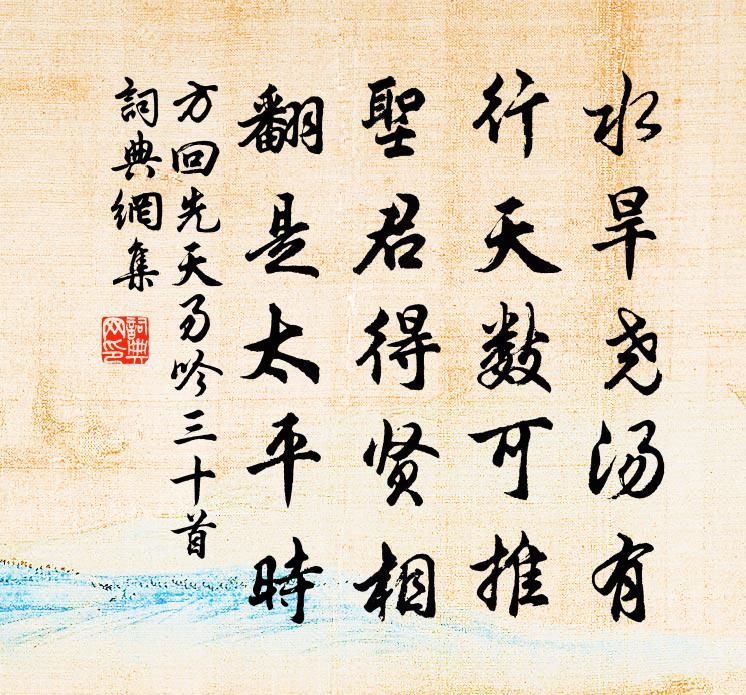 水旱尧汤有
行天数可推
聖君得贤相
翻是太平時
方回先天易吟三十首
詞典網集
詞典網印